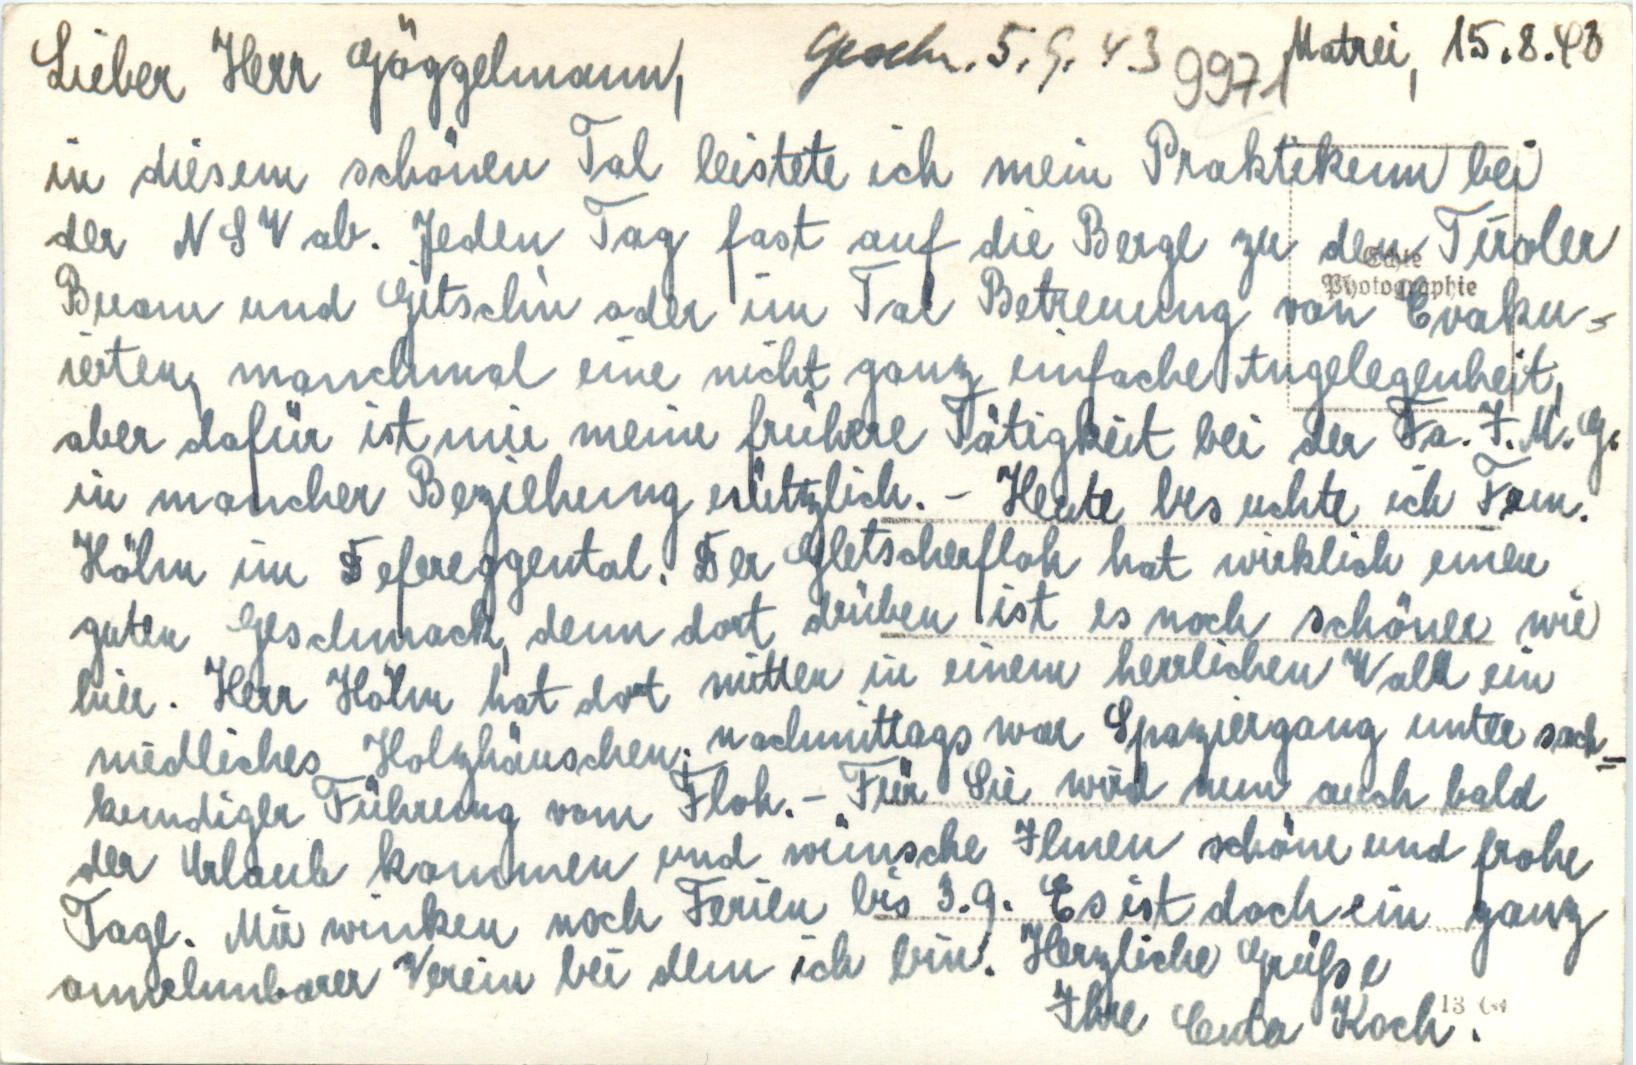 Matrei, 15.8.43
Geschr. 5.9.43
9971
Lieber Herr Göggelmann,
in diesem schönen Tal leistete ich mein Praktikum bei
der NSV ab. Jeden Tag fast auf die Berge zu den Tiroler
Buam und Gitschn oder im Tal Betreuung von Evaku-
ierten, manchmal eine nicht ganz einfache Angelegenheit,
aber dafür ist mir meine frühere Tätigkeit bei der Fa. J.M.G.
in mancher Beziehung nützlich. – Heute besuchte ich Fam.
Höhn im Defereggental. Der Gletscherfloh hat wirklich einen
guten Geschmack, denn dort drüben ist es noch schöner wie
hier. Herr Höhn hat dort mitten in einem herrlichen Wald ein
niedliches Holzhäuschen; nachmittags war Spaziergang unter sach-
kundiger Führung vom Floh. – Für Sie wird nun auch bald
der Urlaub kommen und wünsche Ihnen schöne und frohe
Tage. Mir winken noch Ferien bis 3.9. Es ist doch ein ganz
annehmbarer Verein bei dem ich bin. Herzliche Grüße
Ihre Koch.
Echte
Photographie
13